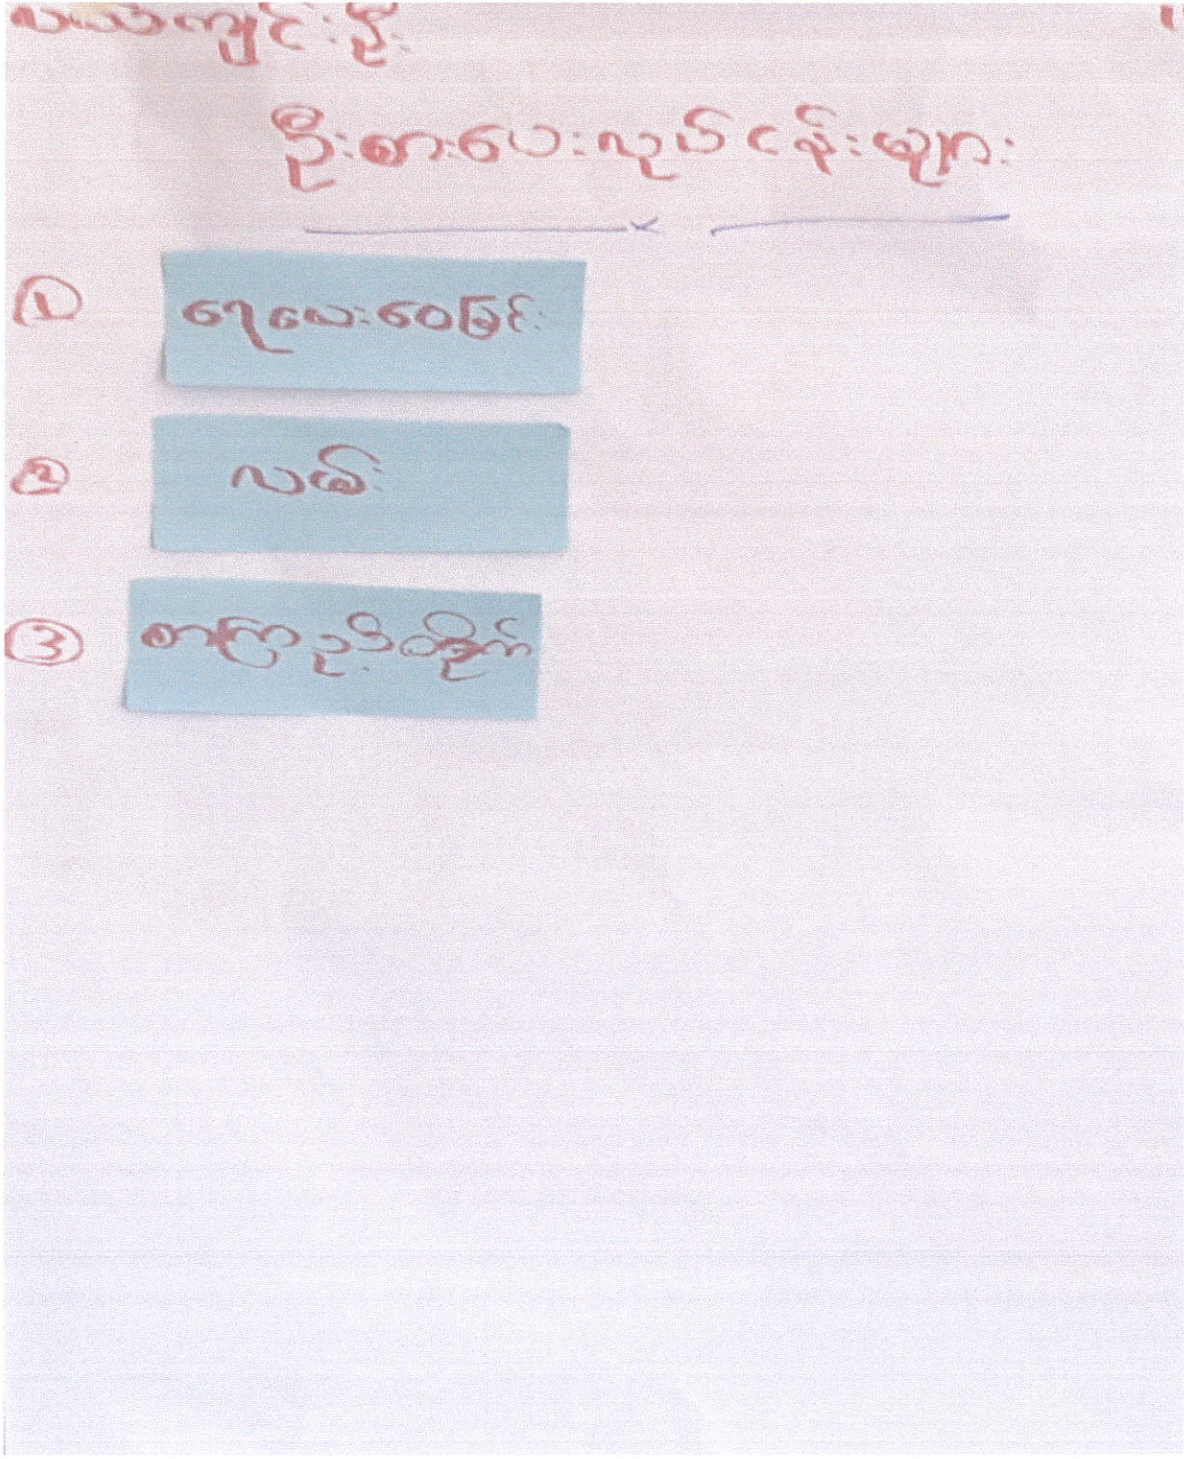 ကျင်းဦး
ဦးစားပေးလုပ်ငန်းများ
① ရေပေးဝေခြင်း
② လမ်း
③ စာကြည့်တိုက်